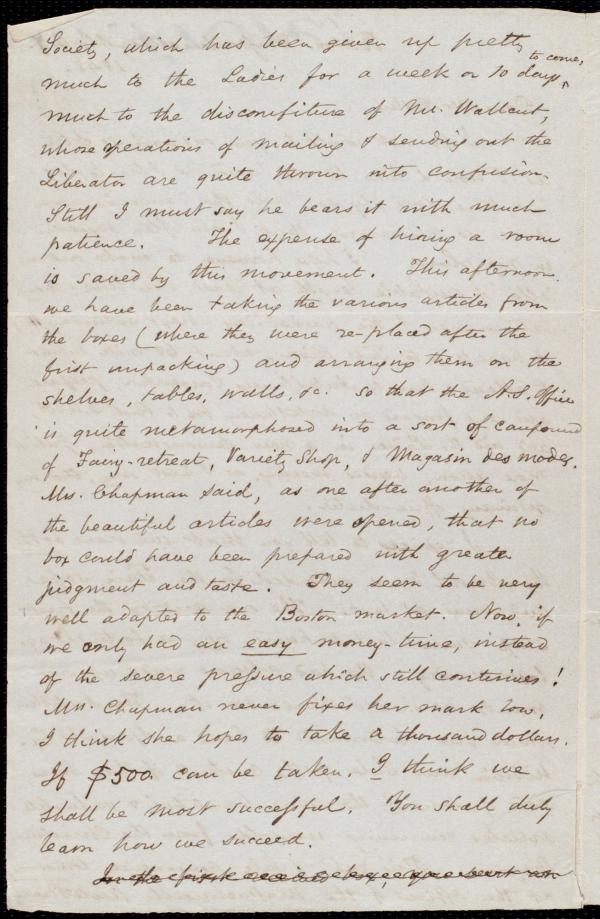 Society, which has been given up pretty
much to the Ladies for a week or 10 days, to come,
much to the discomfiture of Mr. Wallcut,
whose operations of mailing & sending out the
Liberator are quite thrown into confusion.
Still I must say he bears it with much
patience. The expense of hiring a room
is saved by this movement. This afternoon
we have been taking the various articles from
the boxes (where they were re-placed after the
first unpacking) and arranging them on the
shelves, tables, walls, &c. so that the A.S. Office
is quite metamorphosed into a sort of compound
of Fairy-retreat, Variety Shop, & Magasin des modes.
Mrs. Chapman said, as one after another of
the beautiful articles were opened, that no
box could have been prepared with greater
judgment and taste. They seem to be very
well adapted to the Boston market. Now, if
we only had an easy money-time, instead
of the severe pressure which still continues!
Mrs. Chapman never fixes her mark low.
I think she hopes to take a thousand dollars.
If $500. can be taken, I think we
shall be most successful. You shall duly
learn how we succeed.
In the first